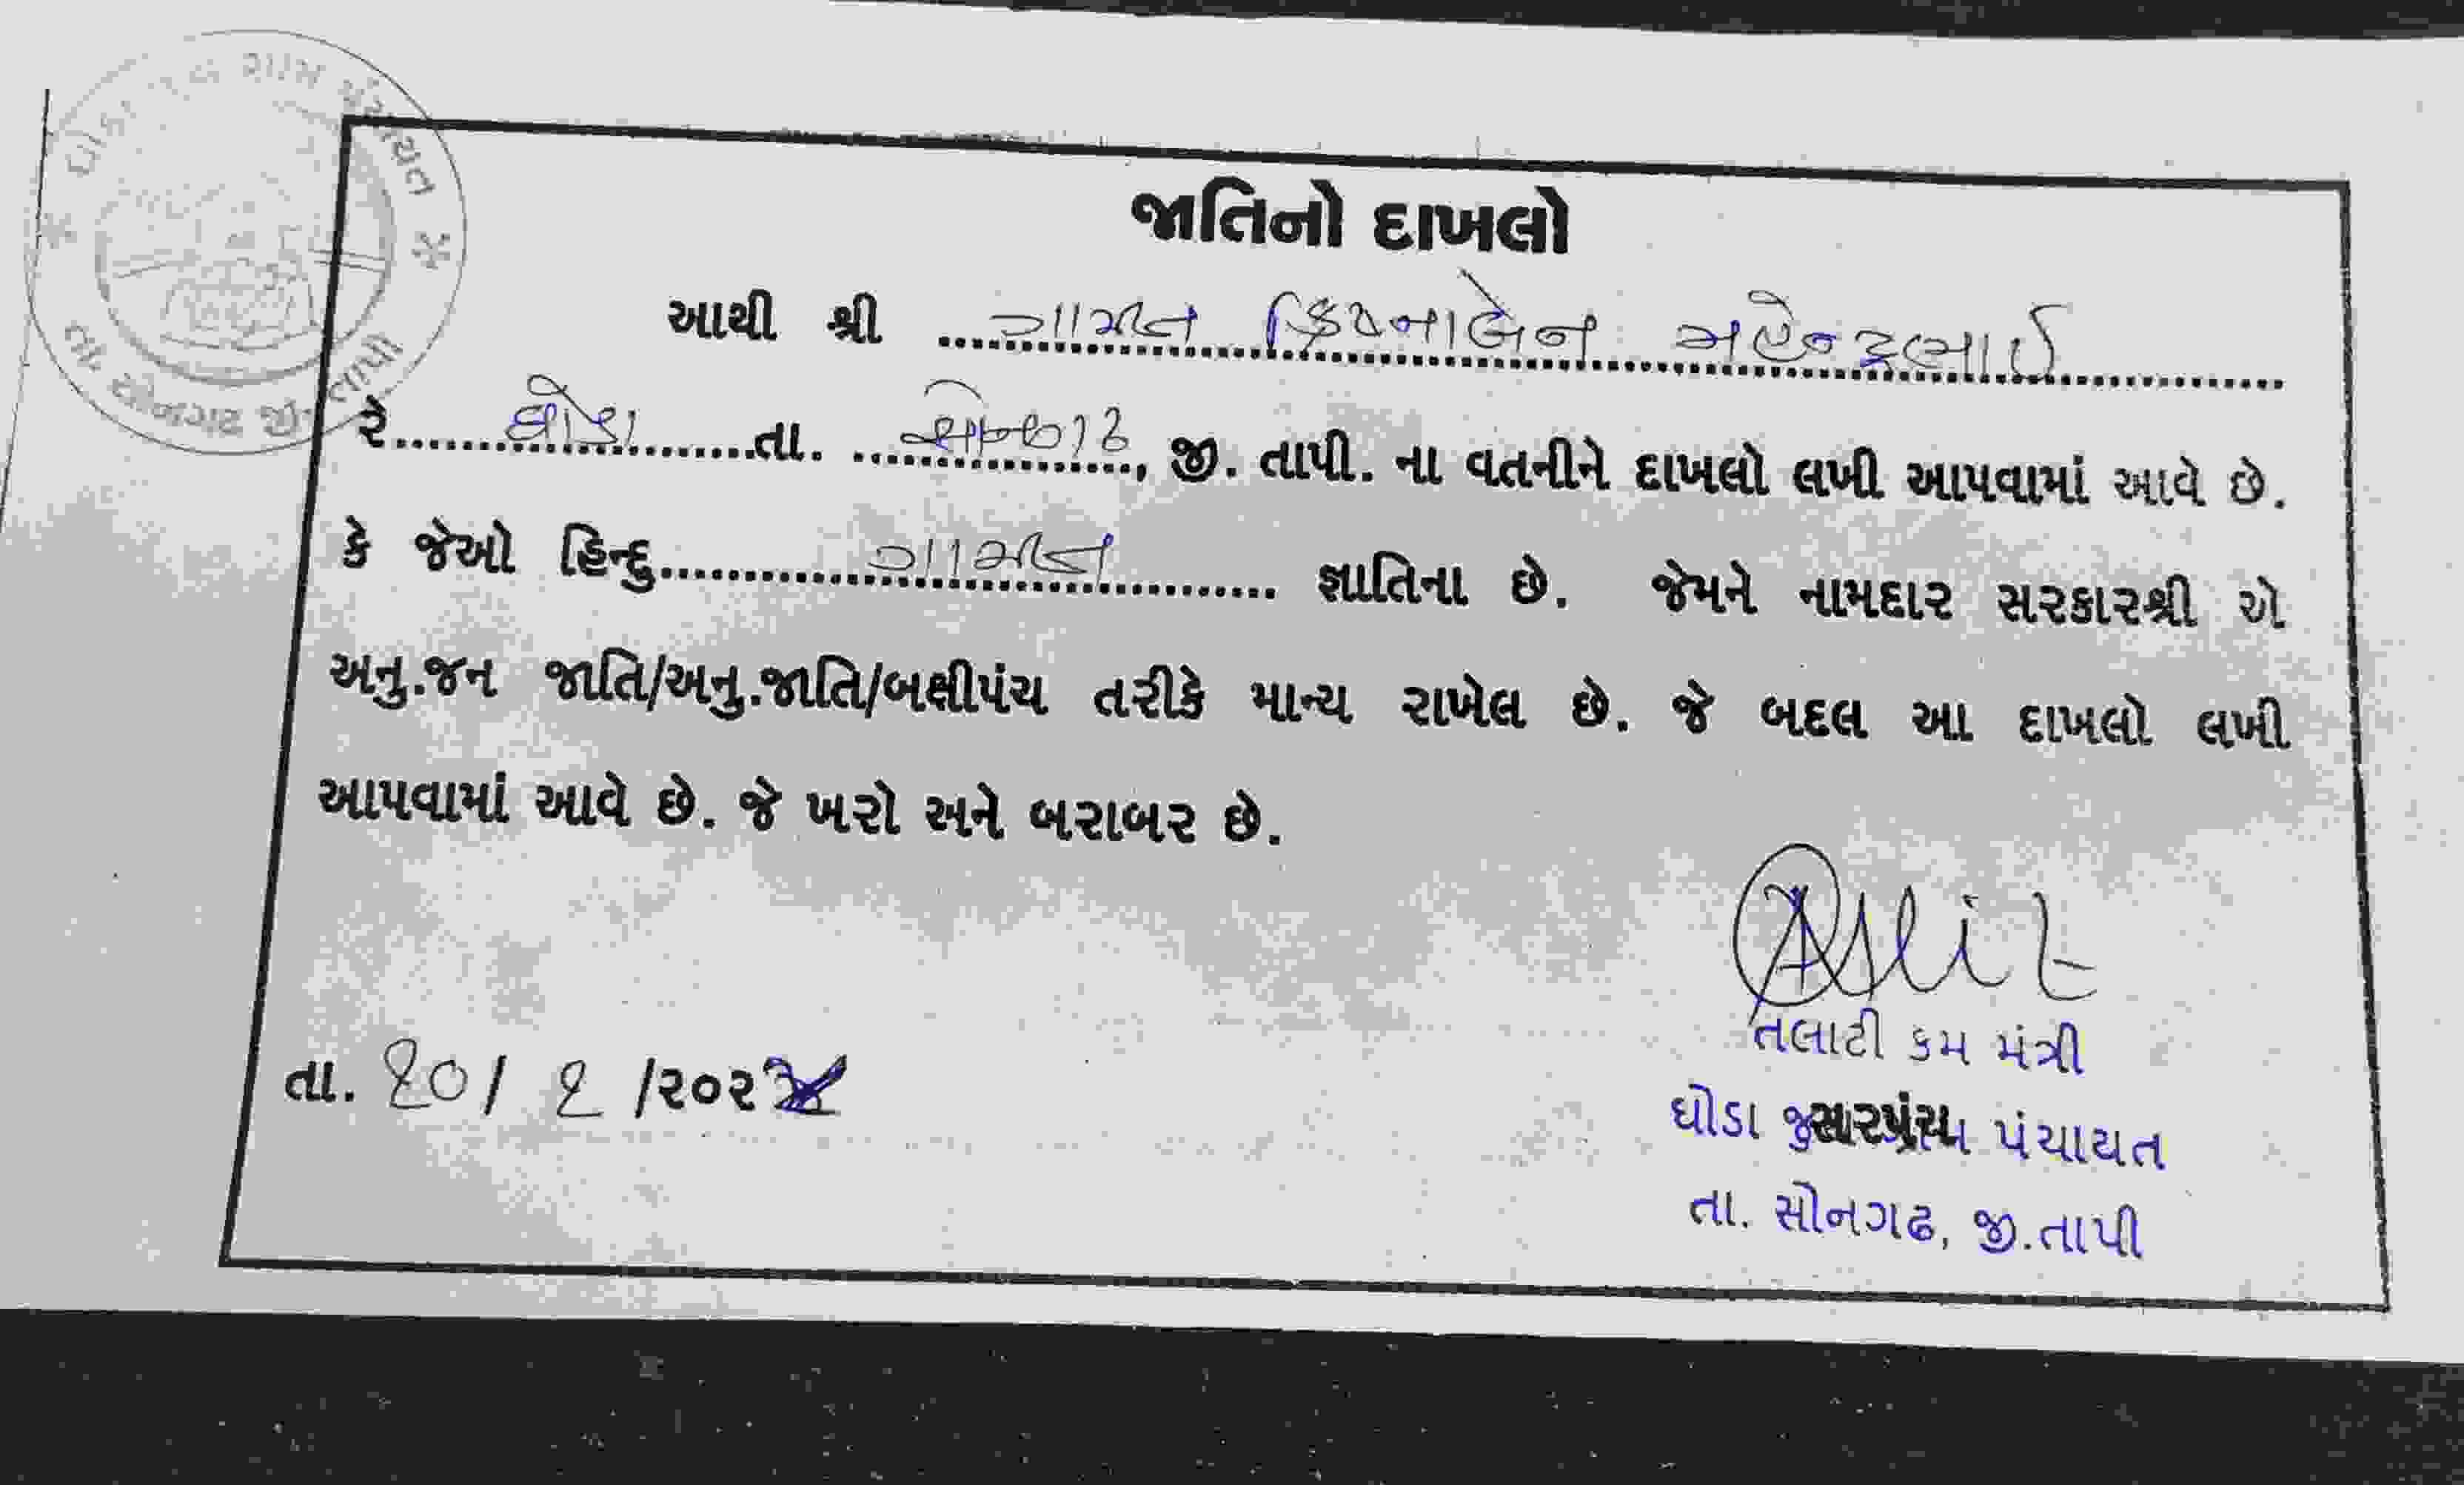 જાતિનો દાખલો
આથી શ્રી ગામીત ક્રિષ્નાબેન મહેન્દ્રભાઈ
રે. ઘોડા તા. સોનગઢ, જી. તાપી. ના વતનીને દાખલો લખી આપવામાં આવે છે.
કે જેઓ હિન્દુ ગામીત જ્ઞાતિના છે. જેમને નામદાર સરકારશ્રી એ
અનુ.જન જાતિ/અનુ.જાતિ/બક્ષીપંચ તરીકે માન્ય રાખેલ છે. જે બદલ આ દાખલો લખી
આપવામાં આવે છે. જે ખરો અને બરાબર છે.
તલાટી કમ મંત્રી
તા. ૨૦/ ૨ /૨૦૨
ઘોડા સરપંચ પંચાયત
તા. સોનગઢ, જી.તાપી